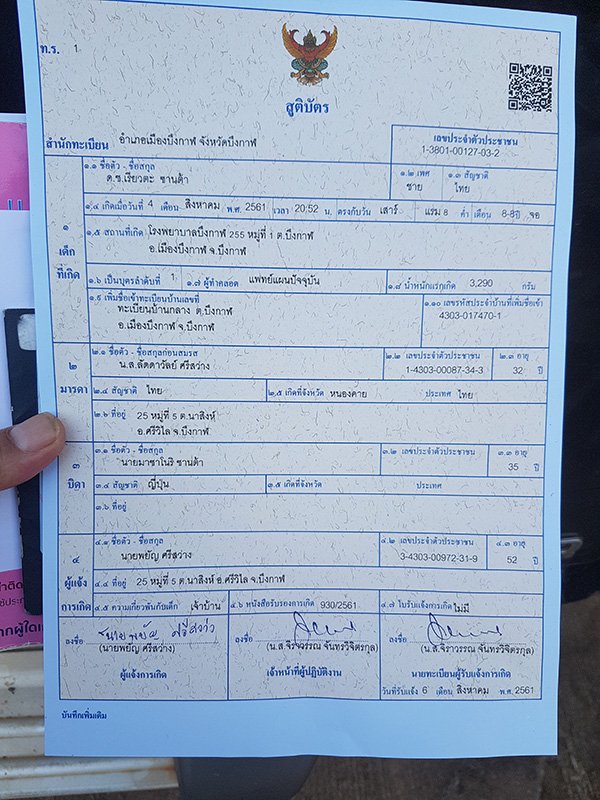 ท.ร. 1
สูติบัตร
สำนักทะเบียน อำเภอเมืองบึงกาฬ จังหวัดบึงกาฬ
เลขประจำตัวประชาชน
1-3801-00127-03-2
๑ เด็กที่เกิด
๑.๑ ชื่อตัว - ชื่อสกุล
ด.ช.เรียวตะ ซานด้า
๑.๒ เพศ ชาย
๑.๓ สัญชาติ ไทย
๑.๔ เกิดเมื่อวันที่ 4 เดือน สิงหาคม พ.ศ. 2561 เวลา 20:52 น. ตรงกับวัน เสาร์ แรม 8 ค่ำ เดือน 8-8 ปี จอ
๑.๕ สถานที่เกิด โรงพยาบาลบึงกาฬ 255 หมู่ที่ 1 ต.บึงกาฬ
อ.เมืองบึงกาฬ จ.บึงกาฬ
๑.๖ เป็นบุตรลำดับที่ 1 ๑.๗ ผู้ทำคลอด แพทย์แผนปัจจุบัน ๑.๘ น้ำหนักแรกเกิด 3,290 กรัม
๑.๙ เพิ่มชื่อเข้าทะเบียนบ้านเลขที่
ทะเบียนบ้านกลาง ต.บึงกาฬ
อ.เมืองบึงกาฬ จ.บึงกาฬ
๑.๑๐ เลขรหัสประจำบ้านที่เพิ่มชื่อเข้า
4303-017470-1
๒ มารดา
๒.๑ ชื่อตัว - ชื่อสกุลก่อนสมรส
น.ส.ลัดดาวัลย์ ศรีสว่าง
๒.๒ เลขประจำตัวประชาชน
1-4303-00087-34-3
๒.๓ อายุ
32 ปี
๒.๔ สัญชาติ ไทย ๒.๕ เกิดที่จังหวัด หนองคาย ประเทศ ไทย
๒.๖ ที่อยู่ 25 หมู่ที่ 5 ต.นาสิงห์
อ.ศรีวิไล จ.บึงกาฬ
๓ บิดา
๓.๑ ชื่อตัว - ชื่อสกุล
นายมาซาโนริ ซานด้า
๓.๒ เลขประจำตัวประชาชน
๓.๓ อายุ
35 ปี
๓.๔ สัญชาติ ญี่ปุ่น ๓.๕ เกิดที่จังหวัด ประเทศ
๓.๖ ที่อยู่
๔ ผู้แจ้งการเกิด
๔.๑ ชื่อตัว - ชื่อสกุล
นายพยัญ ศรีสว่าง
๔.๒ เลขประจำตัวประชาชน
3-4303-00972-31-9
๔.๓ อายุ
52 ปี
๔.๔ ที่อยู่ 25 หมู่ที่ 5 ต.นาสิงห์ อ.ศรีวิไล จ.บึงกาฬ
๔.๕ ความเกี่ยวพันกับเด็ก เจ้าบ้าน ๔.๖ หนังสือรับรองการเกิด 930/2561 ๔.๗ ใบรับแจ้งการเกิด ไม่มี
ลงชื่อ นายพยัญ ศรีสว่าง
(นายพยัญ ศรีสว่าง)
ผู้แจ้งการเกิด
ลงชื่อ
(น.ส.จิราวรรณ จันทรวิจิตรกุล)
เจ้าหน้าที่ผู้ปฏิบัติงาน
ลงชื่อ
(น.ส.จิราวรรณ จันทรวิจิตรกุล)
นายทะเบียนผู้รับแจ้งการเกิด
วันที่รับแจ้ง 6 เดือน สิงหาคม พ.ศ. 2561
บันทึกเพิ่มเติม